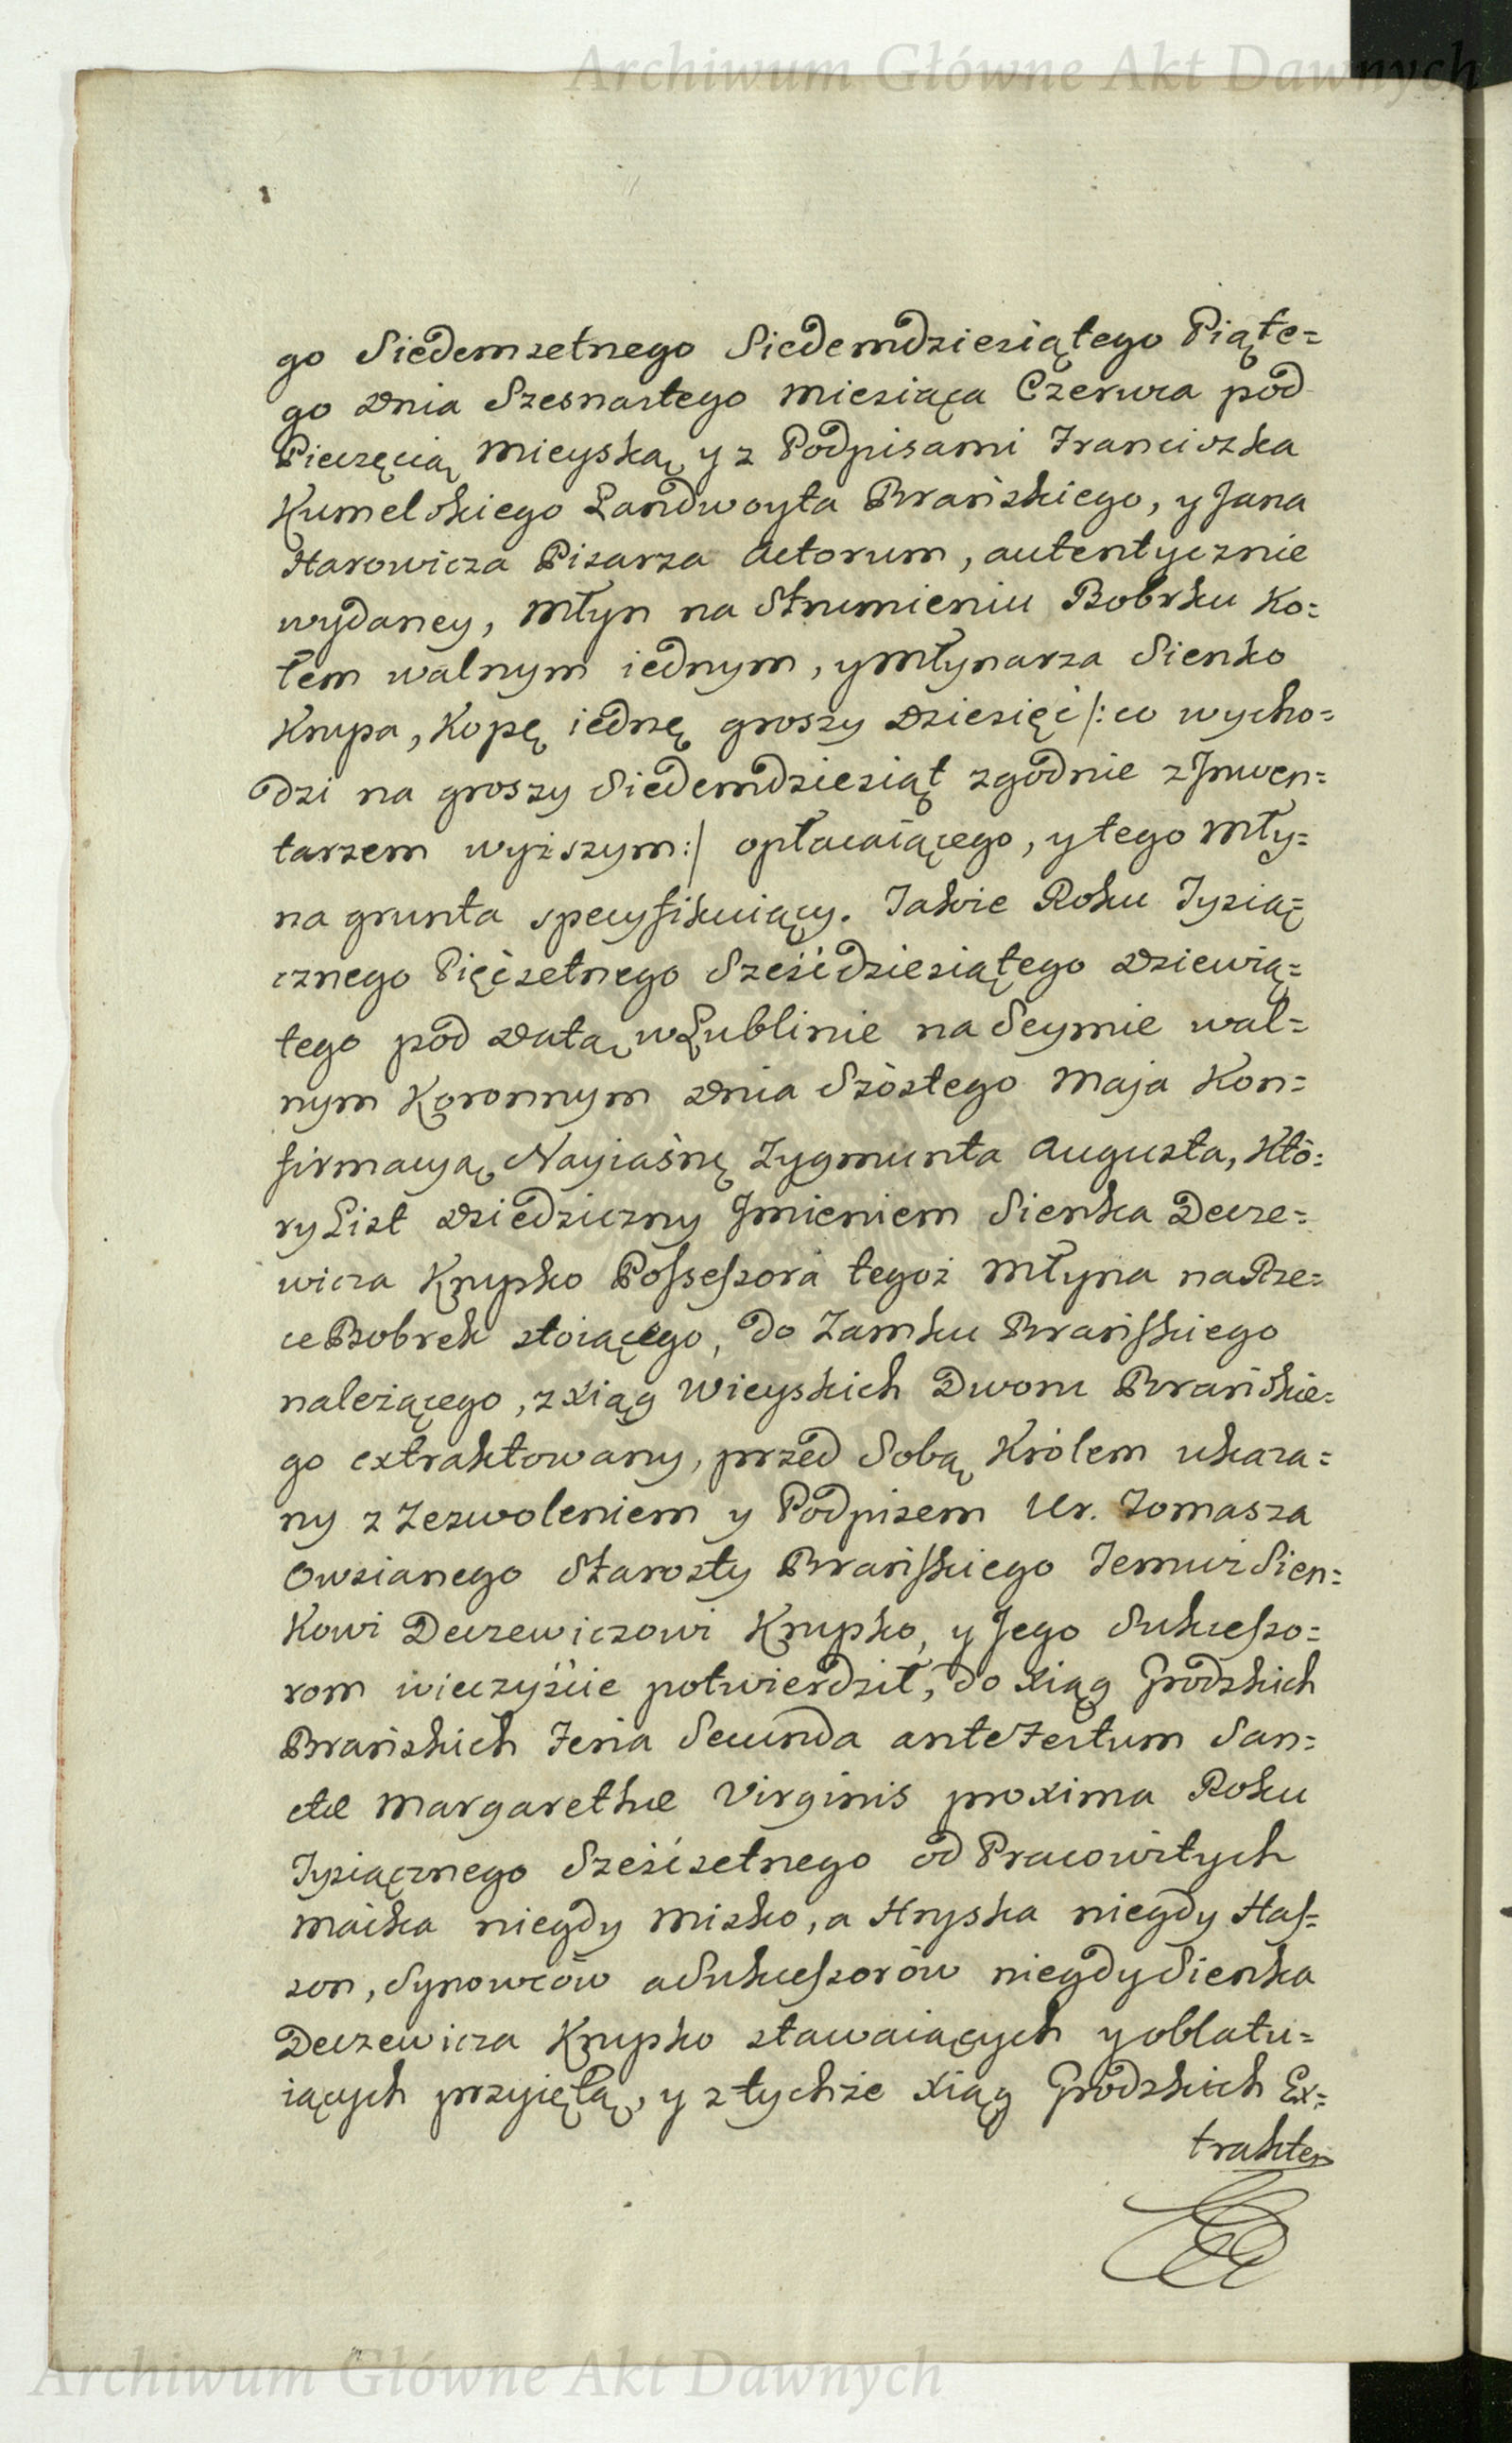 Archiwum Główne Akt Dawnych
go Siedemsetnego Siedemdziesiątego Piąte=
go Dnia Szesnastego Miesiąca Czerwca pod
Pieczęcią Mieyską y z Podpisami Franciszka
Kumelskiego Landwoyta Brańskiego, y Jana
Harowicza Pisarza Actorum, autentycznie
wydaney, Młyn na Strumieniu Bobrku Ko=
łem walnym iednym, y Młynarza Sienko
Krupa, Kopę iednę groszy Dziesięć /: co wycho=
dzi na groszy Siedemdziesiąt zgodnie z Inwen=
tarzem wyższym :/ opłacaiącego, y tego Mły=
na grunta specyfikuiący. Także Roku Tysią=
cznego Pięćsetnego Sześćdziesiątego Dziewią=
tego pod Datą w Lublinie na Seymie wal=
nym Koronnym Dnia Szóstego Maja Kon=
firmacyą Nayiaśnę Zygmunta Augusta, Któ=
ry List Dziedziczny Imieniem Sieńka Decze=
wicza Krupko Possessora tegoż Młyna na Rze=
ce Bobrek stoiącego, do Zamku Brańskiego
należącego, z Xiąg Wieyskich Dworu Brańskie=
go extraktowany, przed Sobą Królem ukaza=
ny z Zezwoleniem y Podpisem Ur. Tomasza
Owsianego Starosty Brańskiego Temuż Sien=
kowi Deczewiczowi Krupko, y Jego Sukcesso=
rom wieczyście potwierdził, do Xiąg Grodzkich
Brańskich Feria Secunda ante Festum San=
ctæ Margarethæ Virginis proxima Roku
Tysiącznego Sześćsetnego od Pracowitych
Maćka niegdy Misko, a Hryska niegdy Has=
son, Synowców a Sukcessorów niegdy Sieńka
Deczewicza Krupko stawaiących y oblatu=
iących przyiętą, y z tychże Xiąg Grodzkich Ex=
traktem
Archiwum Główne Akt Dawnych